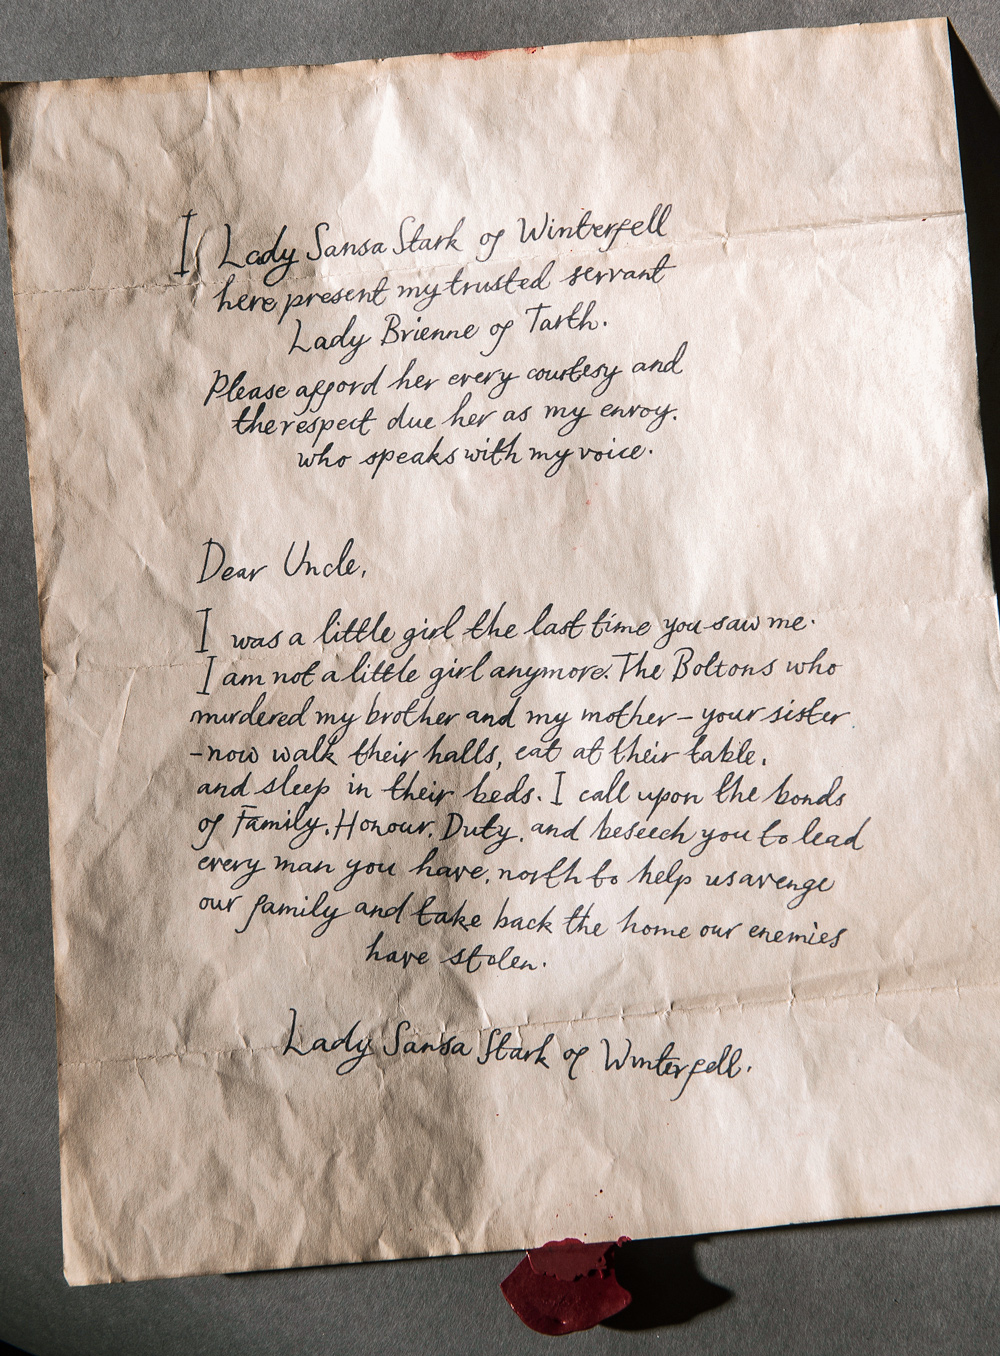 I Lady Sansa Stark of Winterfell
here present my trusted servant
Lady Brienne of Tarth.
Please afford her every courtesy and
the respect due her as my envoy.
who speaks with my voice.
Dear Uncle,
I was a little girl the last time you saw me.
I am not a little girl anymore. The Boltons who
murdered my brother and my mother – your sister
- now walk their halls, eat at their table,
and sleep in their beds. I call upon the bonds
of Family, Honour, Duty, and beseech you to lead
every man you have, north to help us avenge
our family and take back the home our enemies
have stolen.
Lady Sansa Stark of Winterfell.